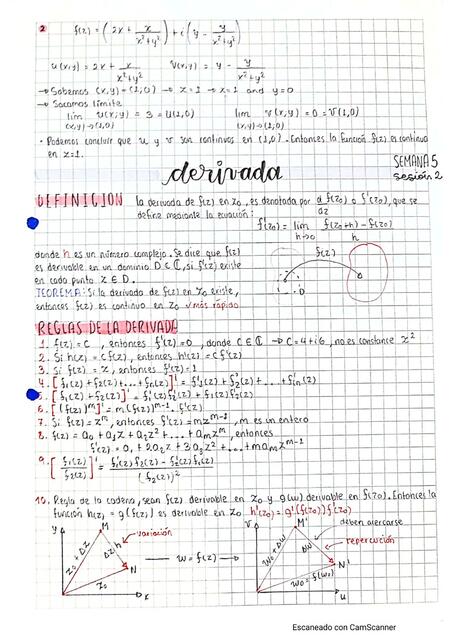 2 f(z) = (2x + x/x²+y²) + i(y - y/x²+y²)
u(x,y) = 2x + x/x²+y² V(x,y) = y - y/x²+y²
→ Sabemos (x,y) → (1,0) → z=1 → x=1 and y=0
→ Sacamos límite
lím u(x,y) = 3 = u(1,0) lím v(x,y) = 0 = v(1,0)
(x,y)→(1,0) (x,y)→(1,0)
• Podemos concluir que u y v son continuos en (1,0). Entonces la función f(z) es continua
en z=1.
derivada
SEMANA 5
sesión 2
DEFINICION la derivada de f(z) en z₀, es denotada por d f(z₀)/dz o f'(z₀), que se
define mediante la ecuación:
f'(z₀) = lím f(z₀+h) - f(z₀)
h→0 h
donde h es un número complejo. Se dice que f(z)
es derivable en un dominio D ⊂ ℂ, si f'(z) existe
en cada punto z ∈ D.
f(z)
D
TEOREMA: Si la derivada de f(z) en z₀ existe,
entonces f(z) es continuo en z₀ ✓ más rápido
REGLAS DE LA DERIVADA
1. f(z) = C, entonces f'(z) = 0, donde C ∈ ℂ → C = 4+i6, no es constance x²
2. Si h(z) = cf(z), entonces h'(z) = cf'(z)
3. f(z) = z, entonces f'(z) = 1
4. [f₁(z) + f₂(z) + ... + fₙ(z)]' = f'₁(z) + f'₂(z) + ... + f'ₙ(z)
5. [f₁(z) + f₂(z)]' = f'₁(z) f₂(z) + f₁(z) f'₂(z)
6. [(f(z))ᵐ]' = m(f(z))ᵐ⁻¹ · f'(z)
7. Si f(z) = zᵐ, entonces f'(z) = mzᵐ⁻¹, m es un entero
8. f(z) = a₀ + a₁z + a₂z² + ... + aₘzᵐ, entonces
f'(z) = a₁ + 2a₂z + 3a₃z² + ... + maₘzᵐ⁻¹
9. [f₁(z)/f₂(z)]' = f'₁(z) f₂(z) - f'₂(z) f₁(z)
(f₂(z))²
10. Regla de la cadena, sean f(z) derivable en z₀ y g(w) derivable en f(z₀). Entonces la
función h(z) = g(f(z)) es derivable en z₀ h'(z₀) = g'(f(z₀)) f'(z₀)
y M variación
z₀ + Δz
Δz h
N
z₀
x
w = f(z)
v M' deben acercarse
repercución
w₀ + Δw
Δw
N'
w₀ = f(z₀)
u
Escaneado con CamScanner